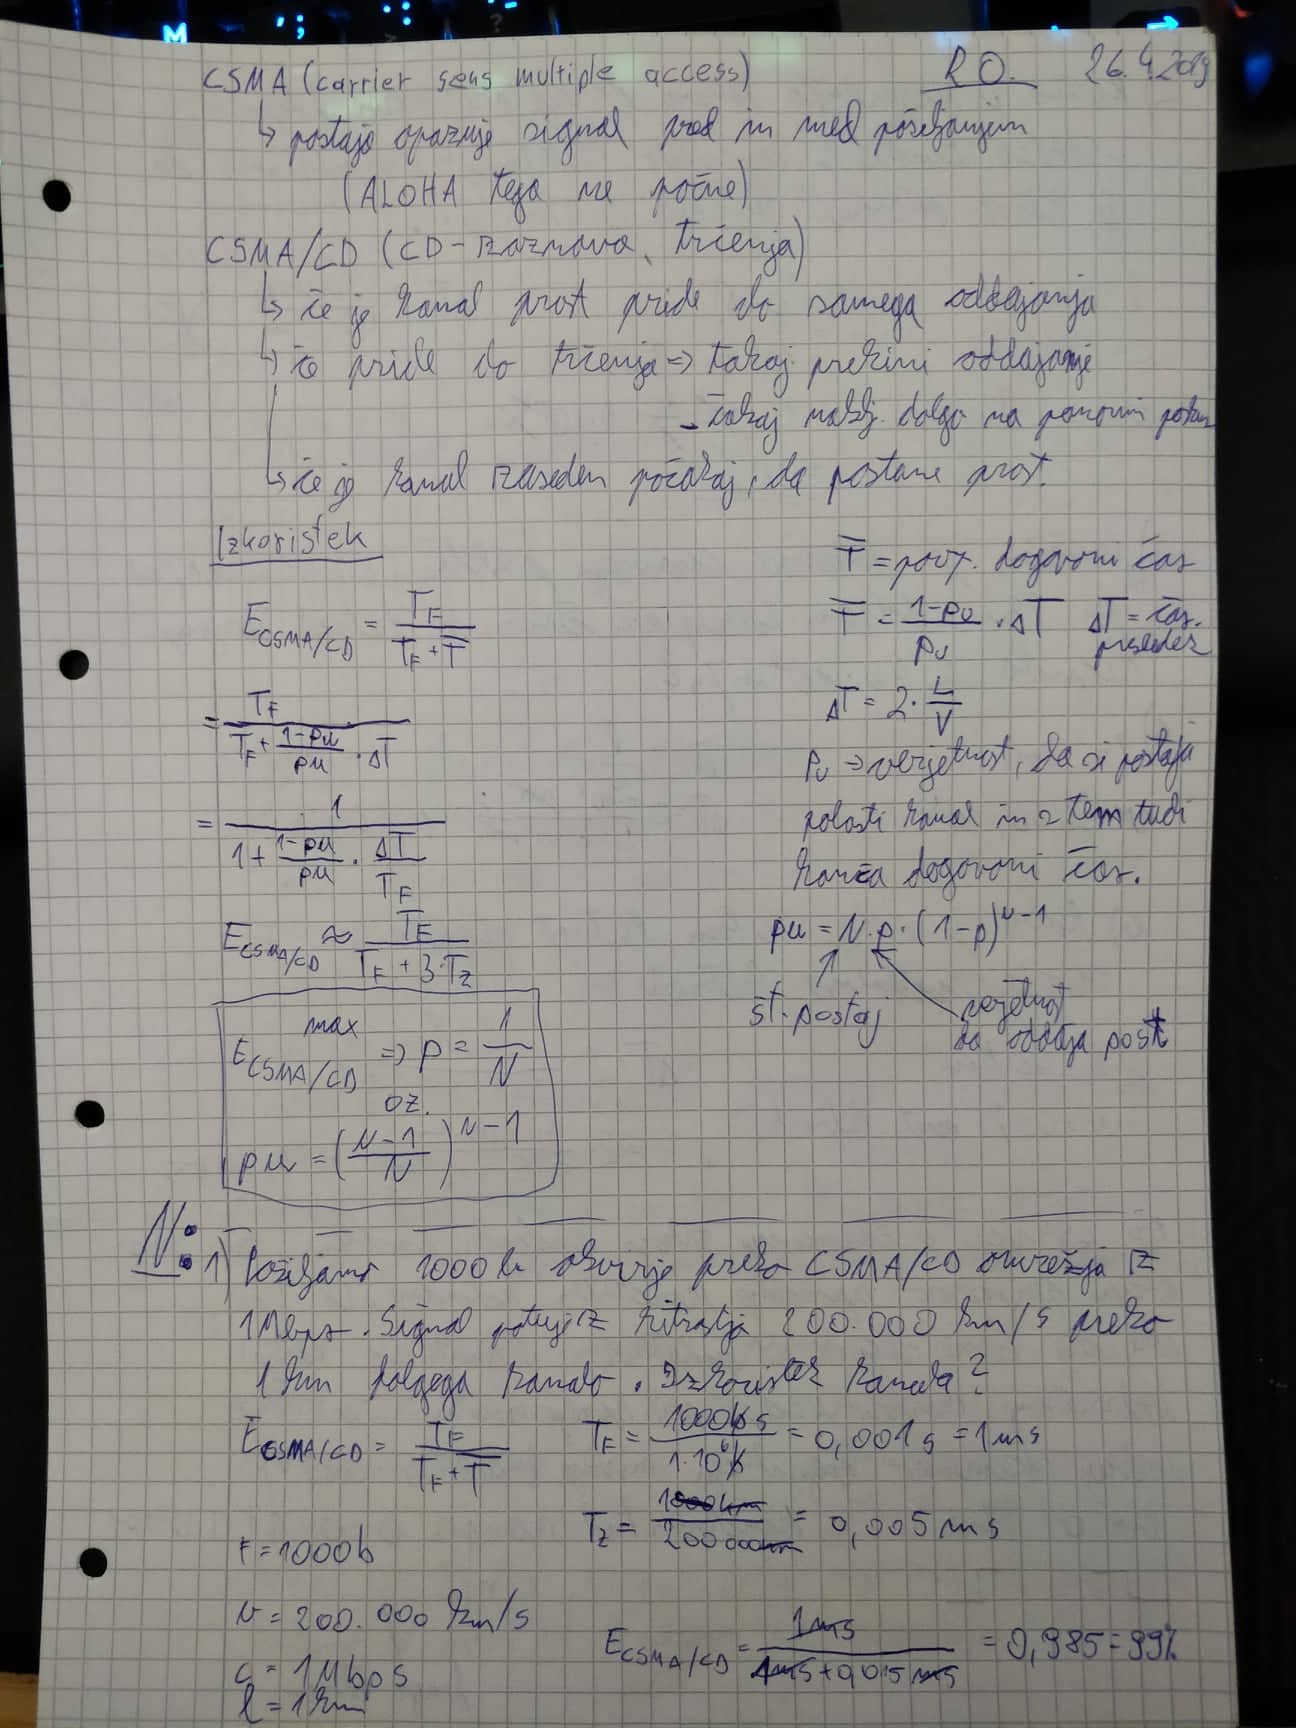 CSMA (carrier sens multiple access)
RO. 26.4.2019
↳ postaja opazuje signal pred in med pošiljanjem
(ALOHA tega ne počne)
CSMA/CD (CD - zaznava trčenja)
↳ če je kanal prost pride do samega oddajanja
↳ če pride do trčenja => takoj prekini oddajanje
- čakaj naklj. dolgo na ponovni
↳ če je kanal zaseden počakaj, da postane prost.
Izkoristek
E_CSMA/CD = T_F / (T_F + T̅)
= T_F / (T_F + (1-pu)/pu · ΔT)
= 1 / (1 + (1-pu)/pu · ΔT/T_F)
E_CSMA/CD ≈ T_F / (T_F + 3·T_z)
max
E_CSMA/CD => p = 1/N
oz.
pu = ((N-1)/N)^(N-1)
T̅ = povp. dogovorni čas
T̅ = (1-pu)/pu · ΔT ΔT = čas.
ΔT = 2 · L/V
Pu => verjetnost, da si postaja
polasti kanal in s tem tudi
konča dogovorni čas.
pu = N·p·(1-p)^(N-1)
št. postaj
verjetnost
da oddaja post
N: 1) Pošiljamo 1000b okvirje preko CSMA/CD omrežja z
1Mbps. Signal potuje z hitrostjo 200.000 km/s preko
1km dolgega kanala. Izkoristek kanala?
E_CSMA/CD = T_F / (T_F + T̅)
T_F = 1000b s / 1·10⁶b = 0,001s = 1ms
T_z = / 200 000 = 0,005ms
F = 1000b
v = 200.000 km/s
c = 1Mbps
l = 1km
E_CSMA/CD = 1ms / (1ms + 0,015ms) = 0,985 = 99%